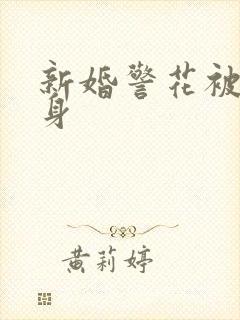 新婚警花被
身
黄莉婷